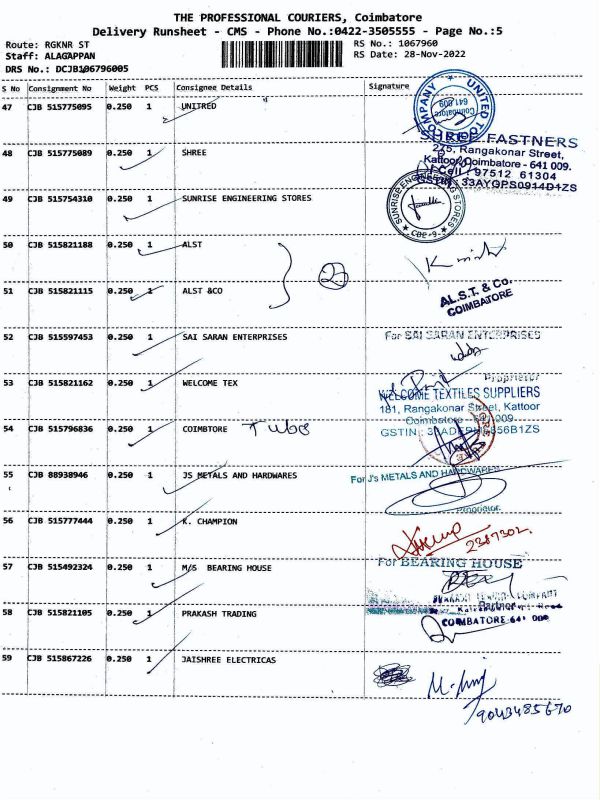 THE PROFESSIONAL COURIERS, Coimbatore
Delivery Runsheet - CMS - Phone No.:0422-3505555 - Page No.:5
Route: RGKNR ST
RS No.: 1067960
Staff: ALAGAPPAN
RS Date: 28-Nov-2022
DRS No.: DCJB106796005
S No Consignment No Weight PCS Consignee Details Signature
47 CJB 515775095 0.250 1 UNITRED
UNITED
COMPANY
Coimbatore
641 009
48 CJB 515775089 0.250 1 SHREE
SHREE FASTNERS
275, Rangakonar Street,
Kattoor, Coimbatore - 641 009.
Cell : 97512 61304
GSTIN: 33AYGPS0914D1ZS
49 CJB 515754310 0.250 1 SUNRISE ENGINEERING STORES
SUNRISE ENGINEERING STORES
CBE-9
50 CJB 515821188 0.250 1 ALST
2
51 CJB 515821115 0.250 1 ALST &CO
AL.S.T. & Co.
COIMBATORE
52 CJB 515597453 0.250 1 SAI SARAN ENTERPRISES
For SAI SARAN ENTERPRISES
Proprietor
53 CJB 515821162 0.250 1 WELCOME TEX
WELCOME TEXTILES SUPPLIERS
181, Rangakonar Street, Kattoor
Coimbatore 641 009
54 CJB 515796836 0.250 1 COIMBTORE Tube
GSTIN:
55 CJB 88938946 0.250 1 JS METALS AND HARDWARES
For J's METALS AND HARDWARES
Proprietor
56 CJB 515777444 0.250 1 K. CHAMPION
2387302
57 CJB 515492324 0.250 1 M/S BEARING HOUSE
For BEARING HOUSE
Partner
58 CJB 515821105 0.250 1 PRAKASH TRADING
COIMBATORE-641 009
59 CJB 515867226 0.250 1 JAISHREE ELECTRICAS
9043485670